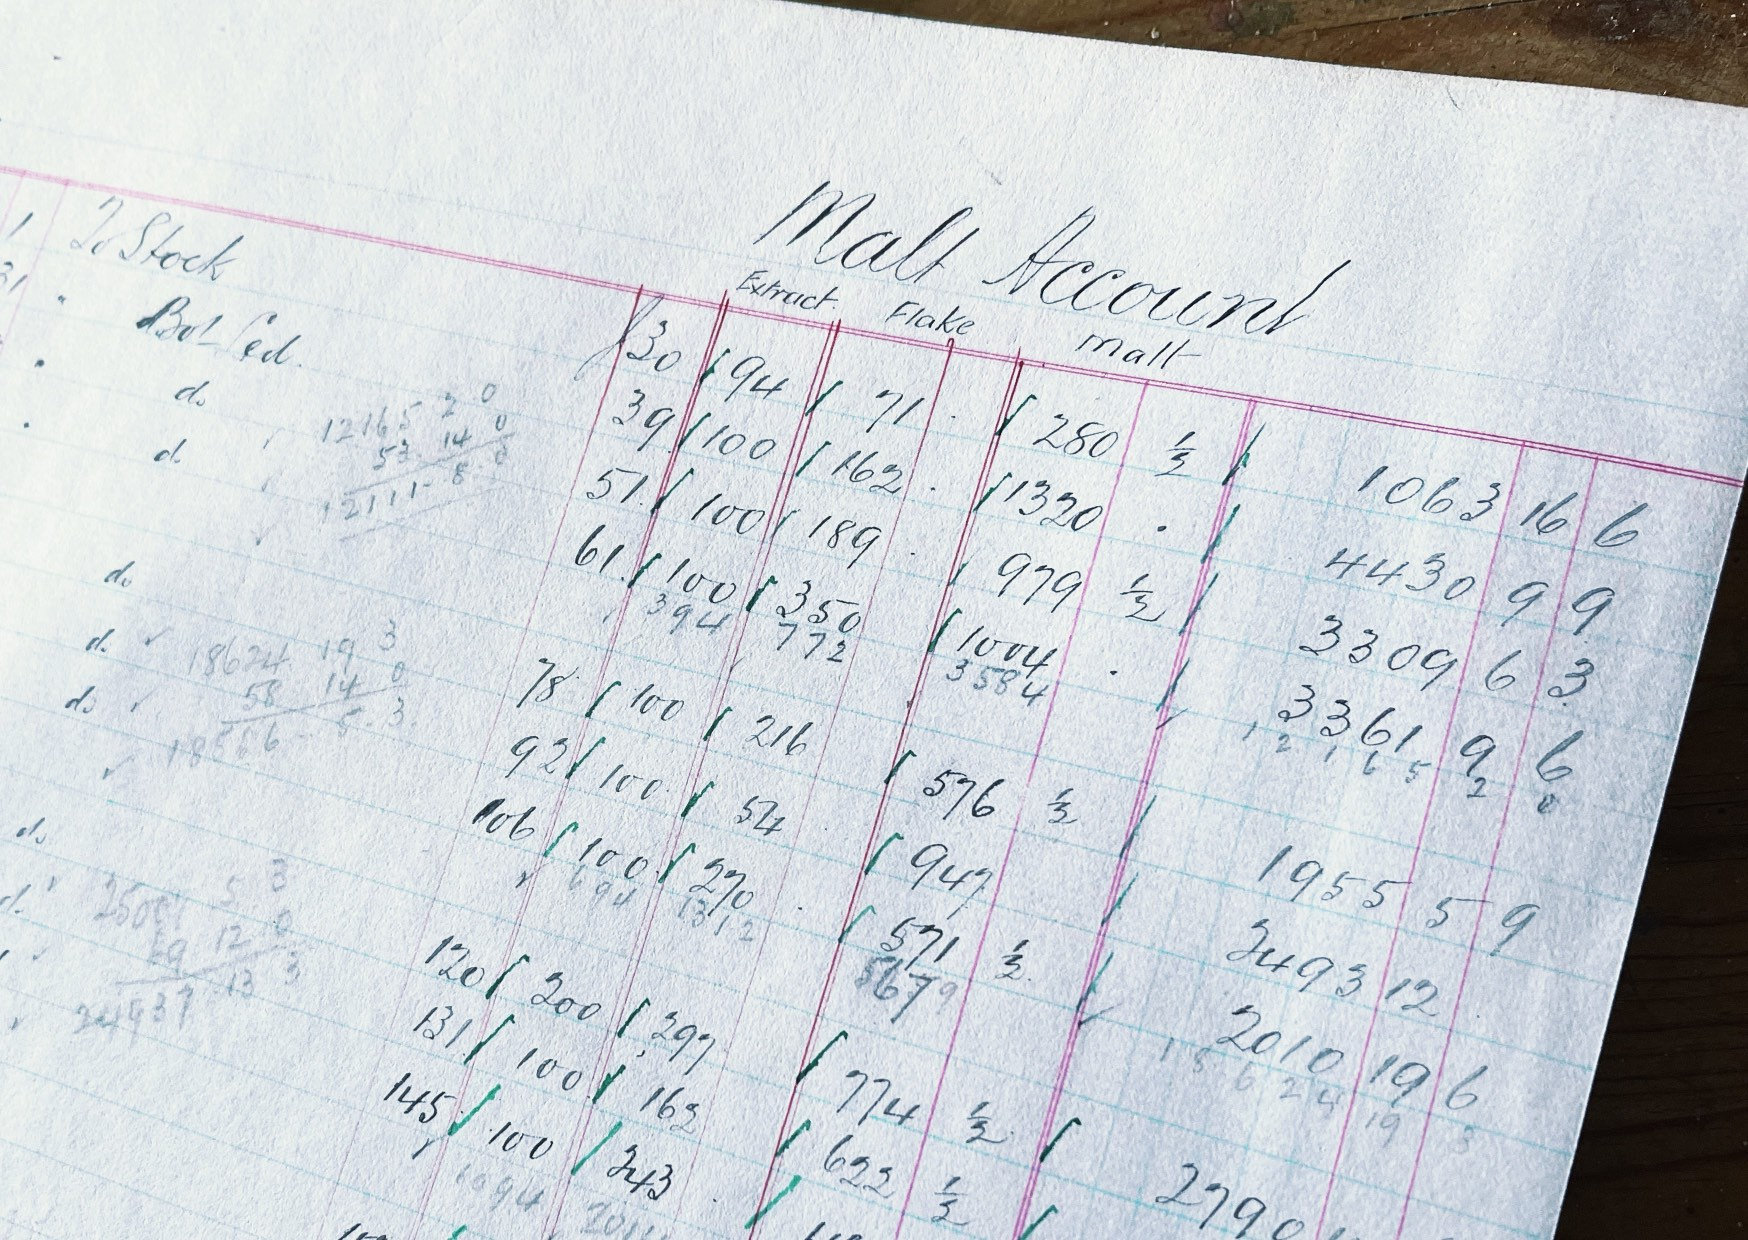 Malt Account
Extract Flake Malt
1 To Stock 30 94 71 280 ½ 1063 16 6
31 " Bot Led. 39 100 162 1320 4430 9 9
" do 51 100 189 979 ½ 3309 6 3
" do 61 100 350 1004 3361 9 6
12165 2 0
53 14 0
12111 - 8 0
394 772 3584 12165 2 0
do 78 100 216 576 ½ 1955 5 9
do 92 100 54 947 2493 12
do 106 100 270 571 ½ 2010 19 6
18624 19 3
58 14 0
694 1312 5679 15624 19 3
do 120 200 297 774 ½ 2790
do 131 100 162 622 ½
145 100 243
5 3
12 0
13 3